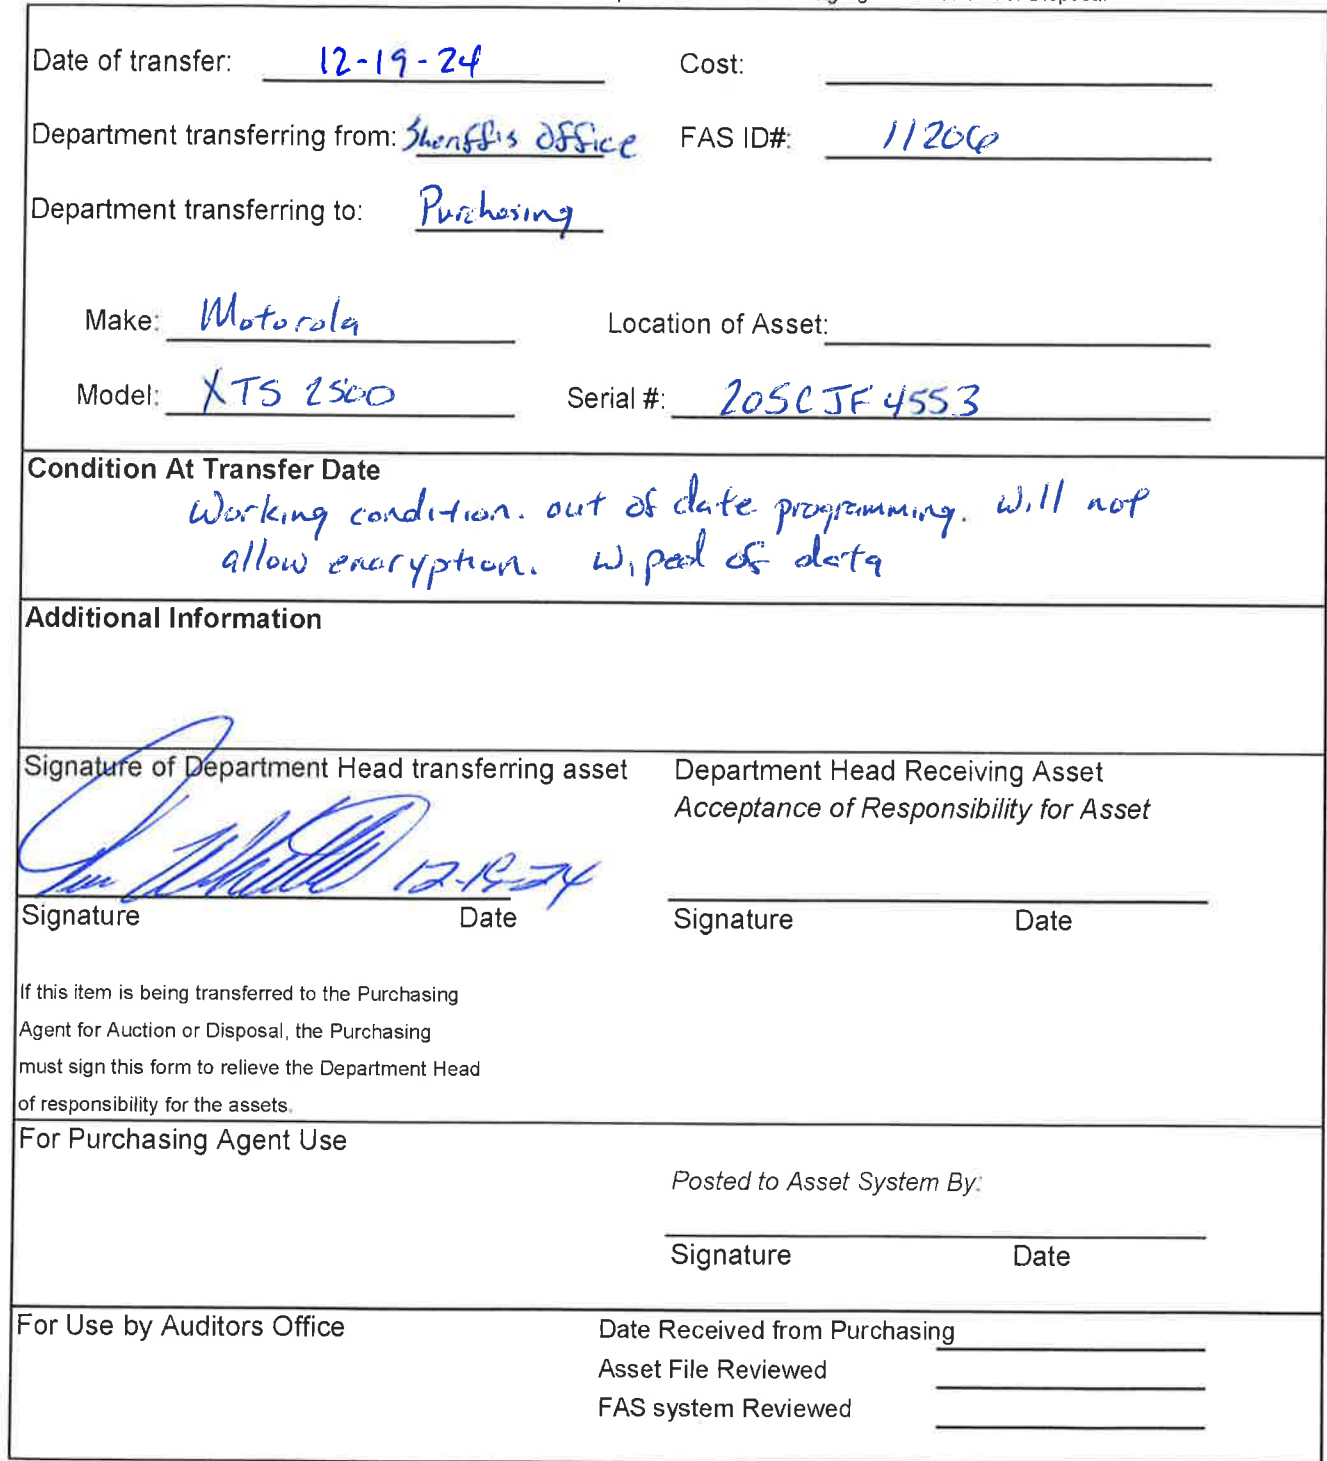 Date of transfer: 12-19-24 Cost:
Department transferring from: Sheriff's Office FAS ID#: 11206
Department transferring to: Purchasing
Make: Motorola Location of Asset:
Model: XTS 2500 Serial #: 205CJF4553
Condition At Transfer Date
Working condition. out of date programming. will not
allow encryption. wiped of data
Additional Information
Signature of Department Head transferring asset Department Head Receiving Asset
Acceptance of Responsibility for Asset
12-19-24
Signature Date Signature Date
If this item is being transferred to the Purchasing
Agent for Auction or Disposal, the Purchasing
must sign this form to relieve the Department Head
of responsibility for the assets.
For Purchasing Agent Use
Posted to Asset System By:
Signature Date
For Use by Auditors Office Date Received from Purchasing
Asset File Reviewed
FAS system Reviewed